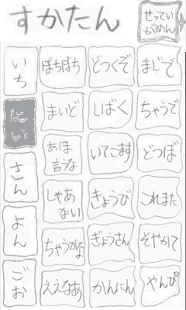 すかたん
せってい
がめん
いち
ぼちぼち
どつくぞ
まじで
まいど
しばく
ちゃうで
さん
あほ
言うな
いてこます
どつぼ
しゃあ
ない
きょうび
これまた
よん
ちゃうがな
ぎょうさん
そやかて
ごお
ええなあ
かんにん
やんぴ